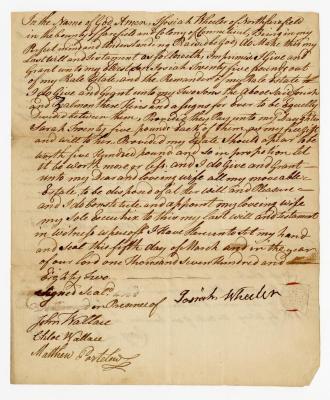 In the Name of God Amen, Josiah Wheeler of North fairfield
in the County of fairfield and Colony of Connecticut, Being in my
Perfect mind and
Last will and testament as followeth, Imprimis I Give and
Grant unto my
of my Real Estate and the Remainder of my Real Estate to
I do Give and Grant unto my two Sons the above Said Josiah
and Zalmon their Heirs and assigns for ever to be Equally
divided between them, Provided they Pay unto my Daughter
Sarah Twenty five pounds each of them, as my free Gift
and will to her Provided my Estate Should apear to be
worth five Hundred pound and So in proportion all
be it worth more or less. and I do Give and Grant
unto my Dear and loveing wife all my moveable
Estate, to be disposed of at her Will and Pleasure
and I do Constitute and appoint my loveing wife
my Sole Executrix to this my last will and testament
in witness whereof I have Hereunto Set my hand
and Seal this fifth day of March and in the year
of our lord one thousand Seven hundred and
Eighty two
Signed Seal'd and
in Presence of Josiah Wheeler
John Wallace
Chloe Wallace
Matthew